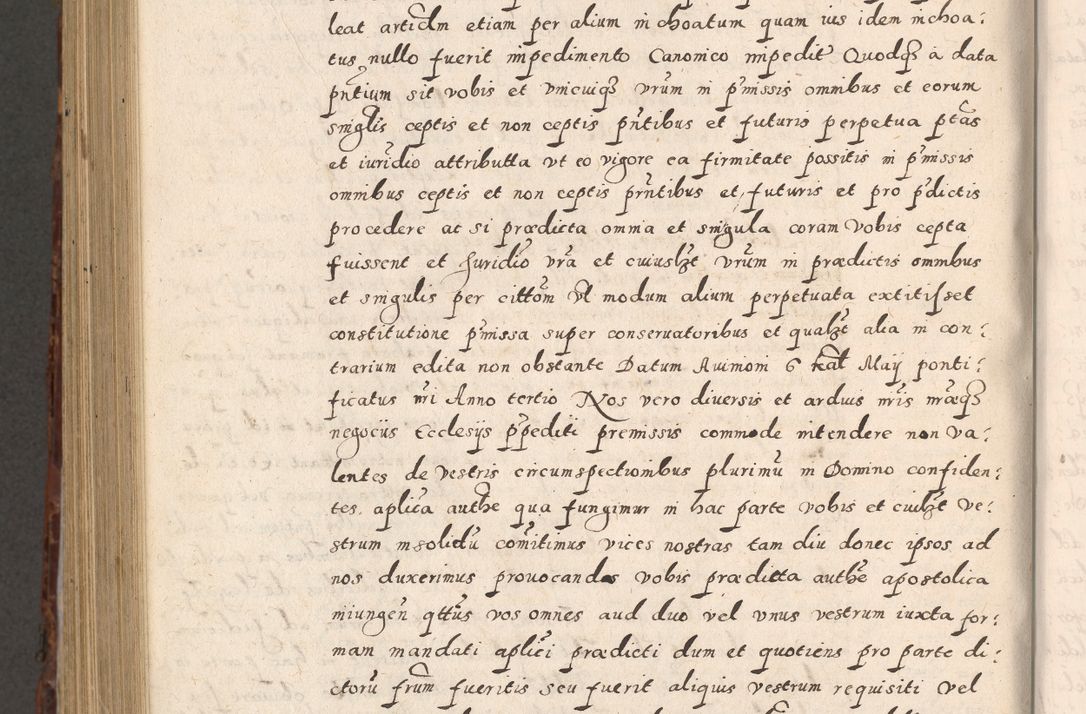 leat articlm etiam per alium in choatum quam ius idem inchoa:
tus nullo fuerit impedimento Canonico impedit Quodqȝ à data
pñtium sit vobis et vnicuiqȝ vrũm in p̃missis omnibus et eorum
singlis ceptis et non ceptis pñtibus et futuris perpetua ptãs
et iurĩdio attributta vt eo vigore ea firmitate possitis in p̃missis
omnibus ceptis et non ceptis prñtibus et futuris et pro p̃dictis
procedere ac si prædicta omnia et singula coram vobis cepta
fuissent et Juridio vrã et cuiuslȝt vrũm in prædictis omnibus
et singulis per cittõm vl modum alium perpetuata extitisset
constitutione p̃missa super conseruatoribus et qualȝt alia in con:
trarium edita non obstante Datum Auinioni 6 kal̃ Maij ponti:
ficatus nri Anno tertio Nos vero diuersis et arduis nris nræqȝ
negociis Ecclesijs p̃pediti premissis commode intendere non va:
lentes de vestris circumspectionibus plurimũ in Domino confiden:
tes aplica authe qua fungimur in hac parte vobis et cuilȝt ve:
strum insolidũ comĩtimus vices nostras tam diu donec ipsos ad
nos duxerimus prouocandas vobis prædicta authe apostolica
iniungeñ qttũs vos omnes aud duo vel vnus vestrum iuxta for:
man mandati aplici prædicti dum et quotiens pro parte di:
ctorũ frũm fueritis seu fuerit aliquis vestrum requisiti vel